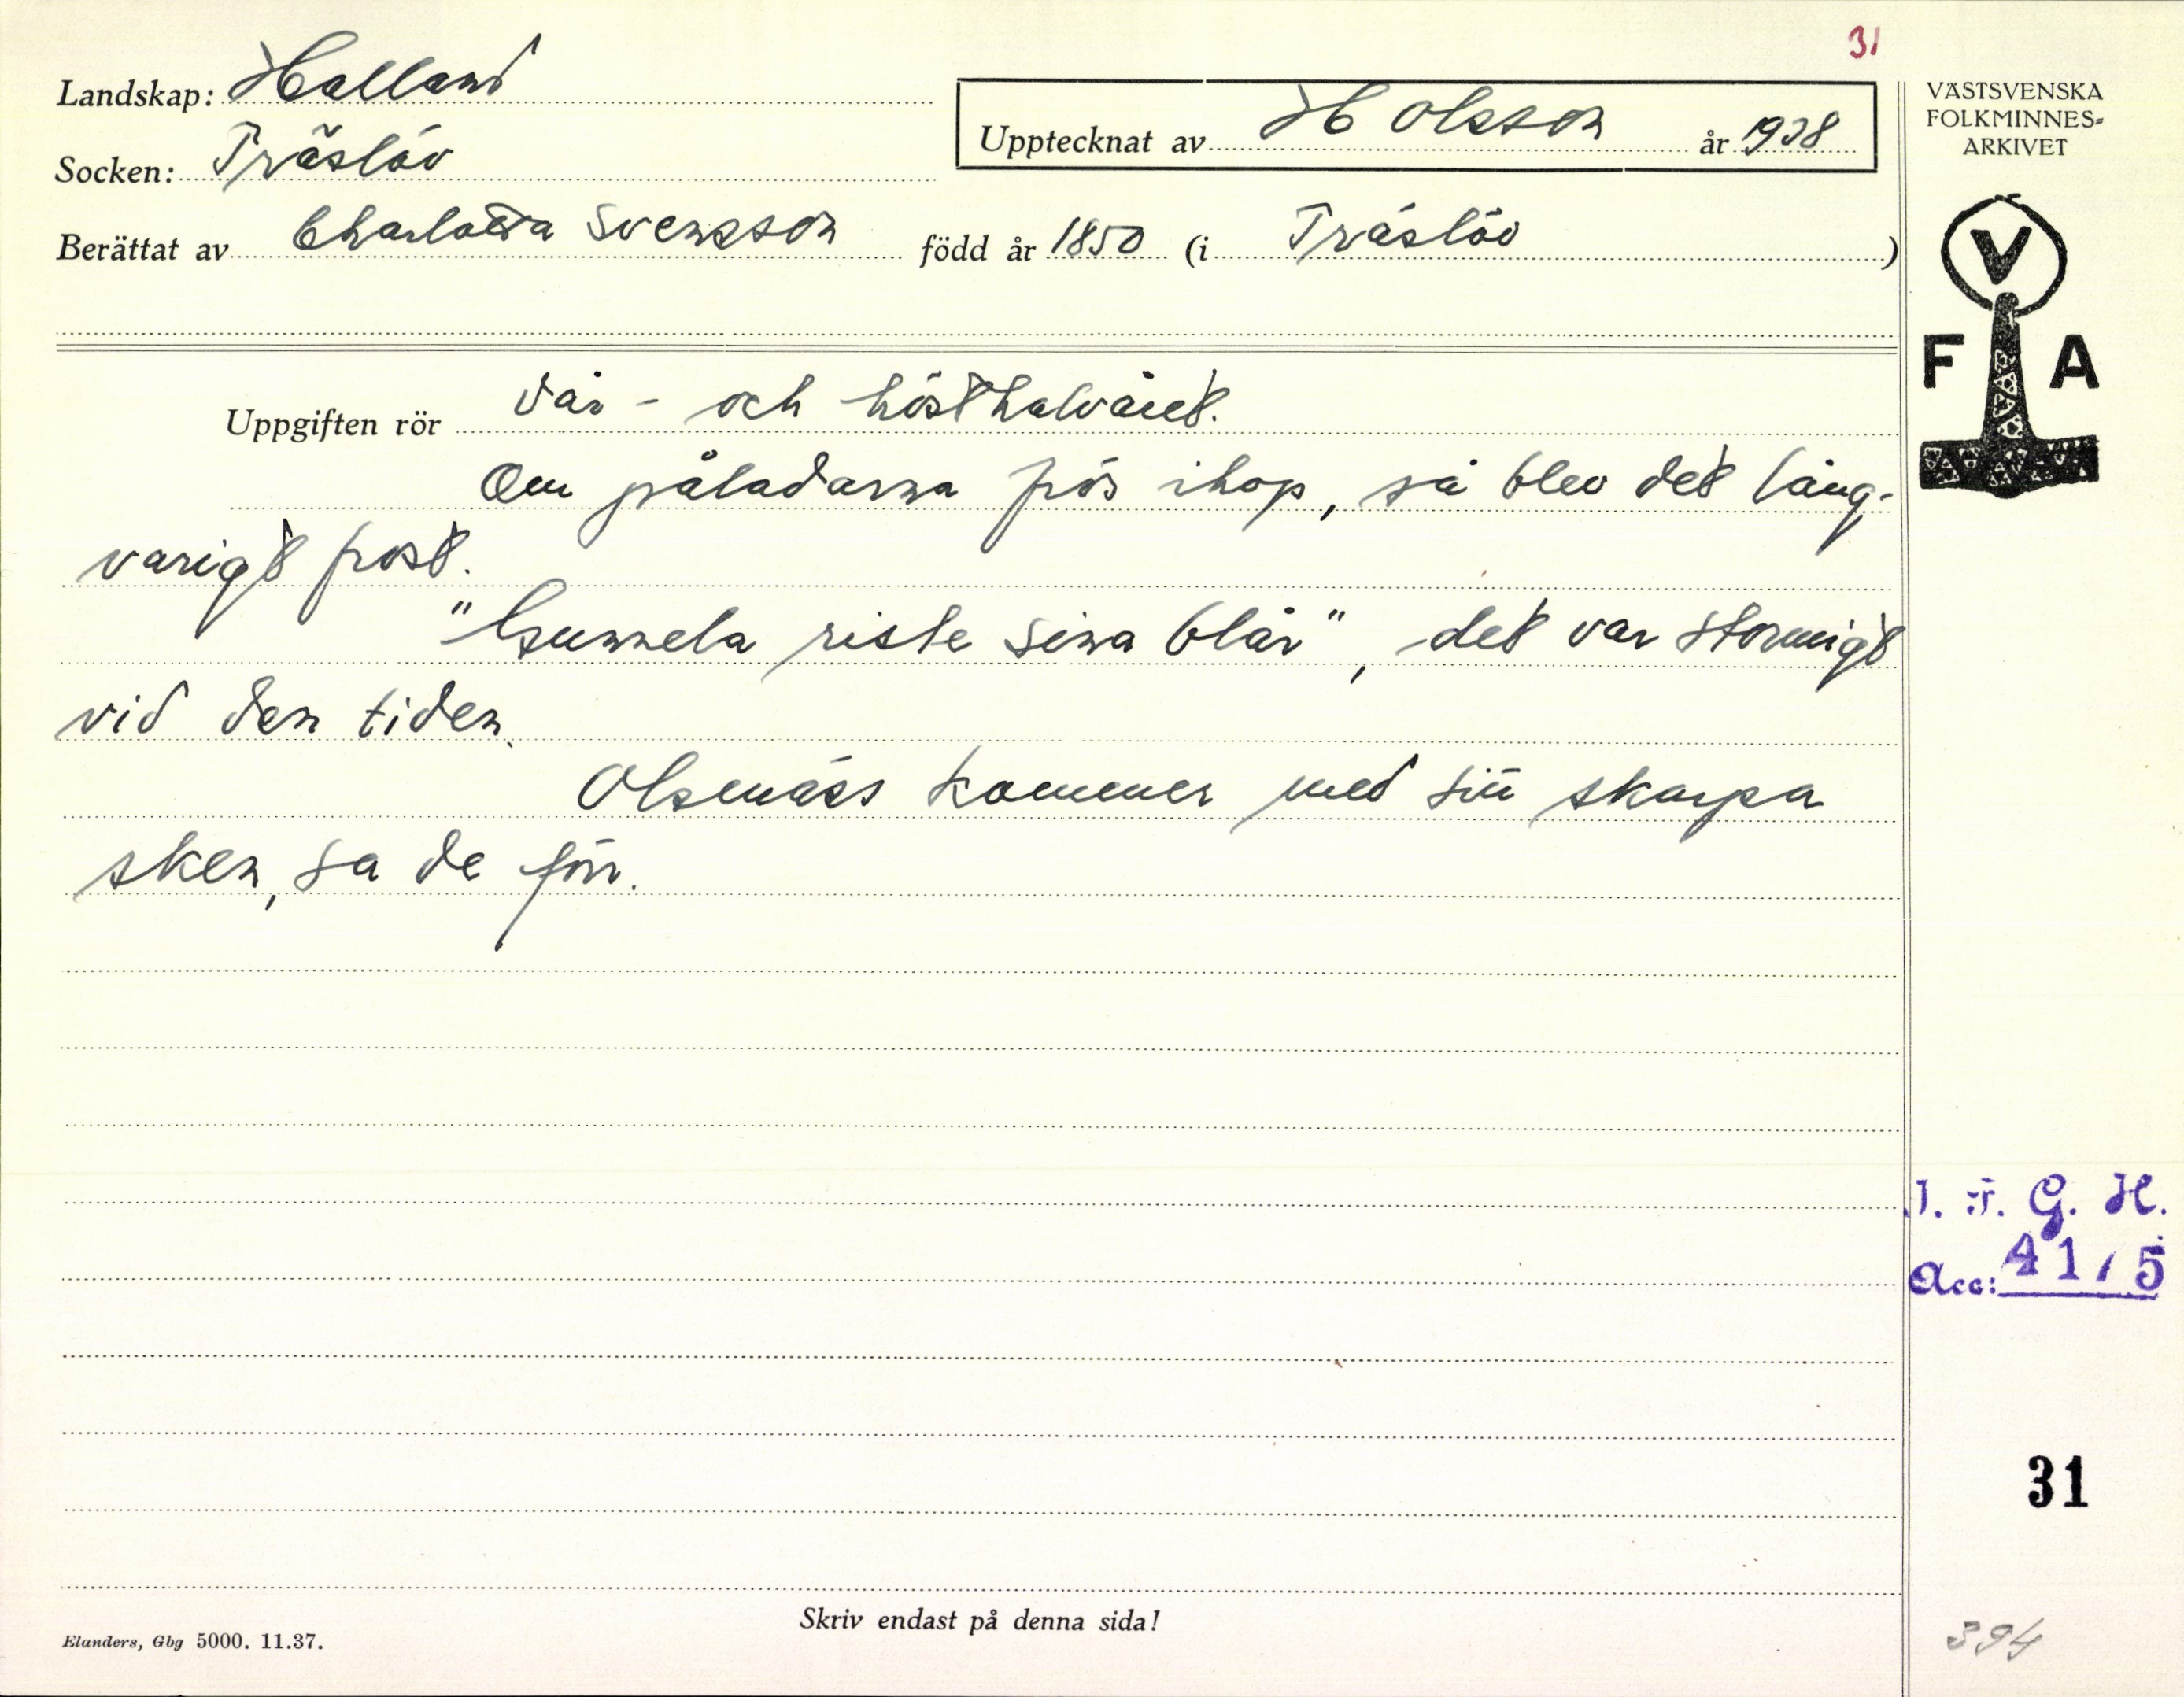 31
Landskap: Halland
Upptecknat av H Olsson år 1938
Socken: Träslöv
Berättat av Charlotta Svensson född år 1850 (i Träslöv)
VÄSTSVENSKA
FOLKMINNES-
ARKIVET
V
F A
Uppgiften rör Vår- och hösthalvåret.
Om påladarna frös ihop, så blev det lång-
varigt frost.
"Gunnela riste sina blår", det var stormigt
vid den tiden.
Olsmäss kommer med sin skarpa
sken, sa de förr.
I. F. G. H.
Acc: 41 / 5
31
Skriv endast på denna sida!
Elanders, Gbg 5000. 11.37.
394